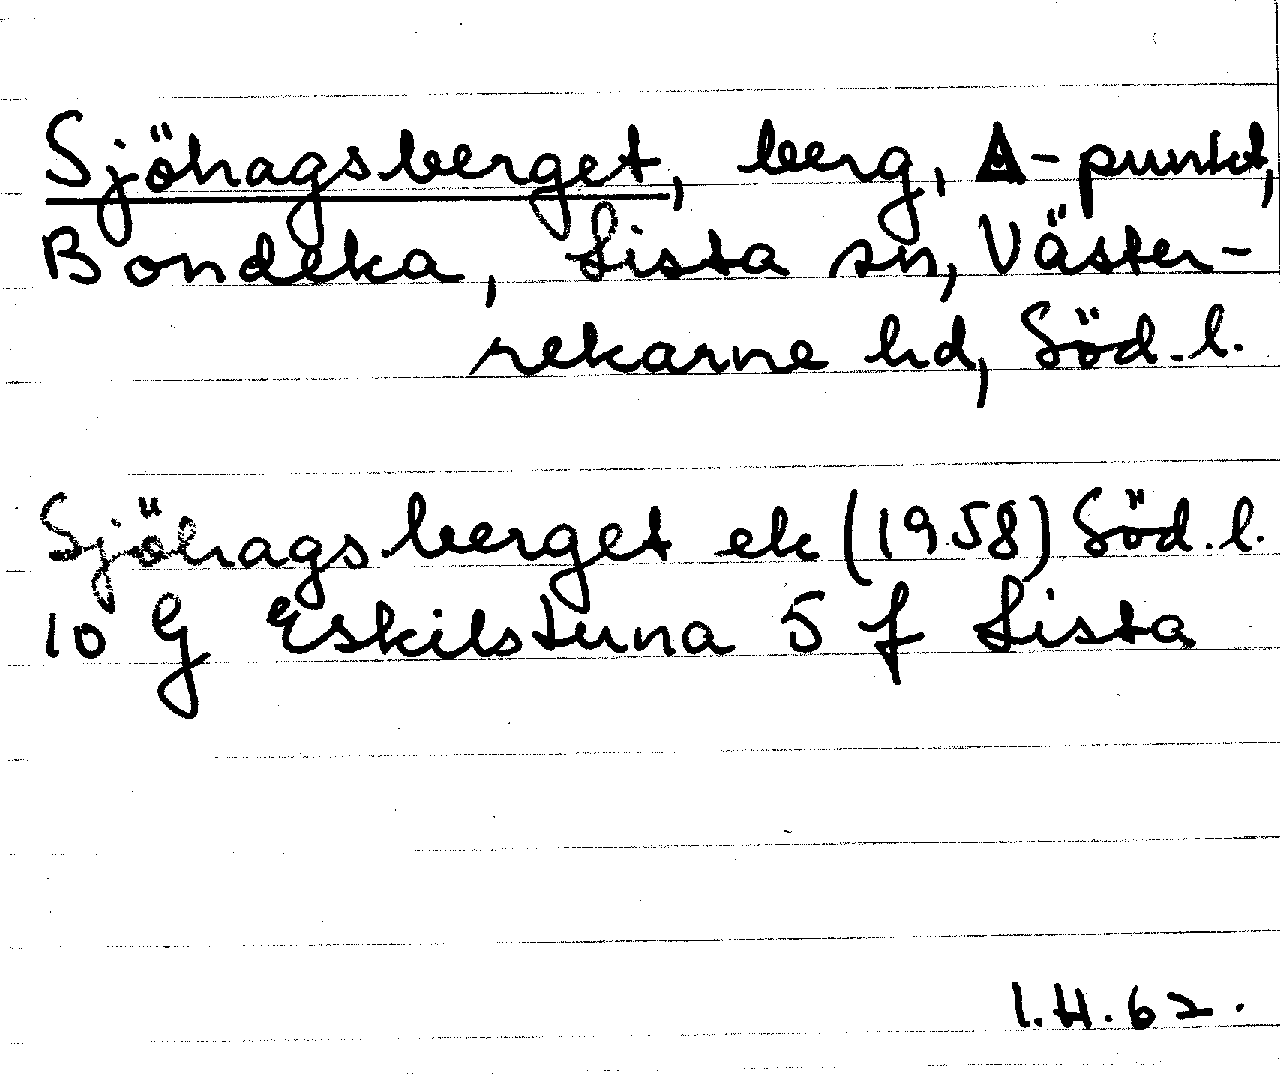 Sjöhagsberget, berg, △-punkt,
Bondeka, Lista sn, Väster-
rekarne hd, Söd.l.
Sjöhagsberget ek (1958) Söd.l.
10 G Eskilstuna 5 f Lista
I.H.62.